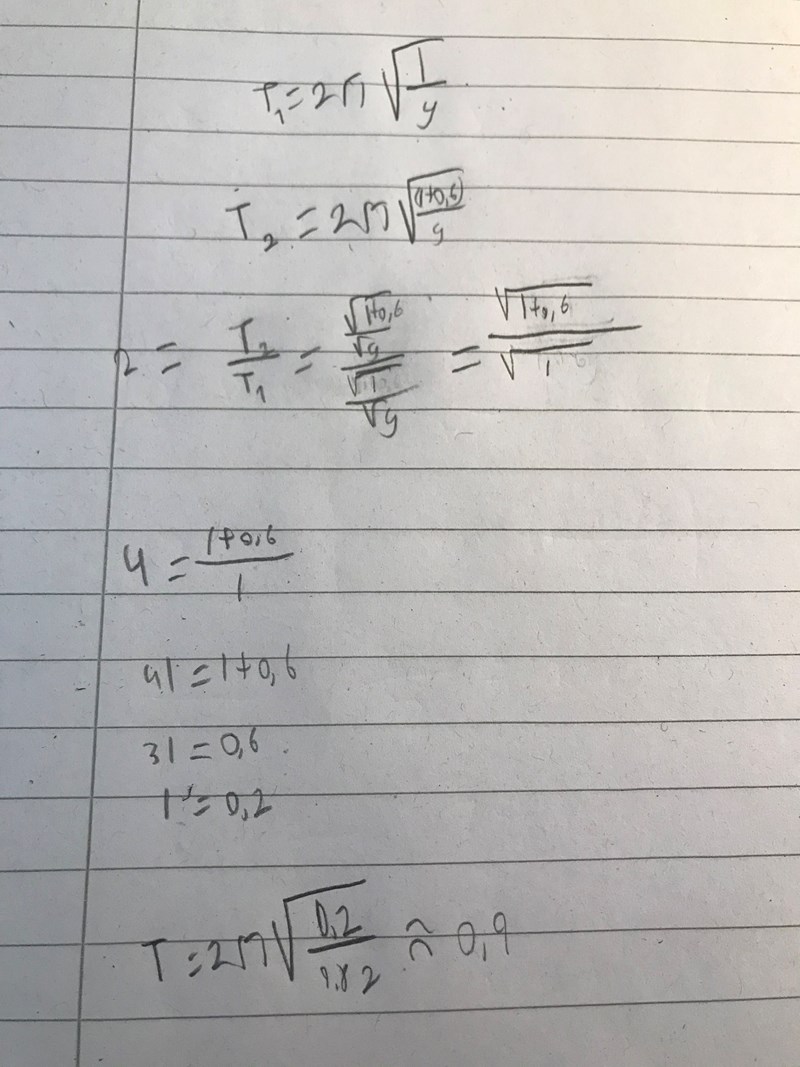 T₁ = 2π √(l/g)
T₂ = 2π √((l+0,6)/g)
2 = T₂/T₁ = (√(l+0,6)/√g)/(√l/√g) = √(l+0,6)/√l
4 = (l+0,6)/l
4l = l+0,6
3l = 0,6
l = 0,2
T = 2π √(0,2/9.82) ≈ 0,9